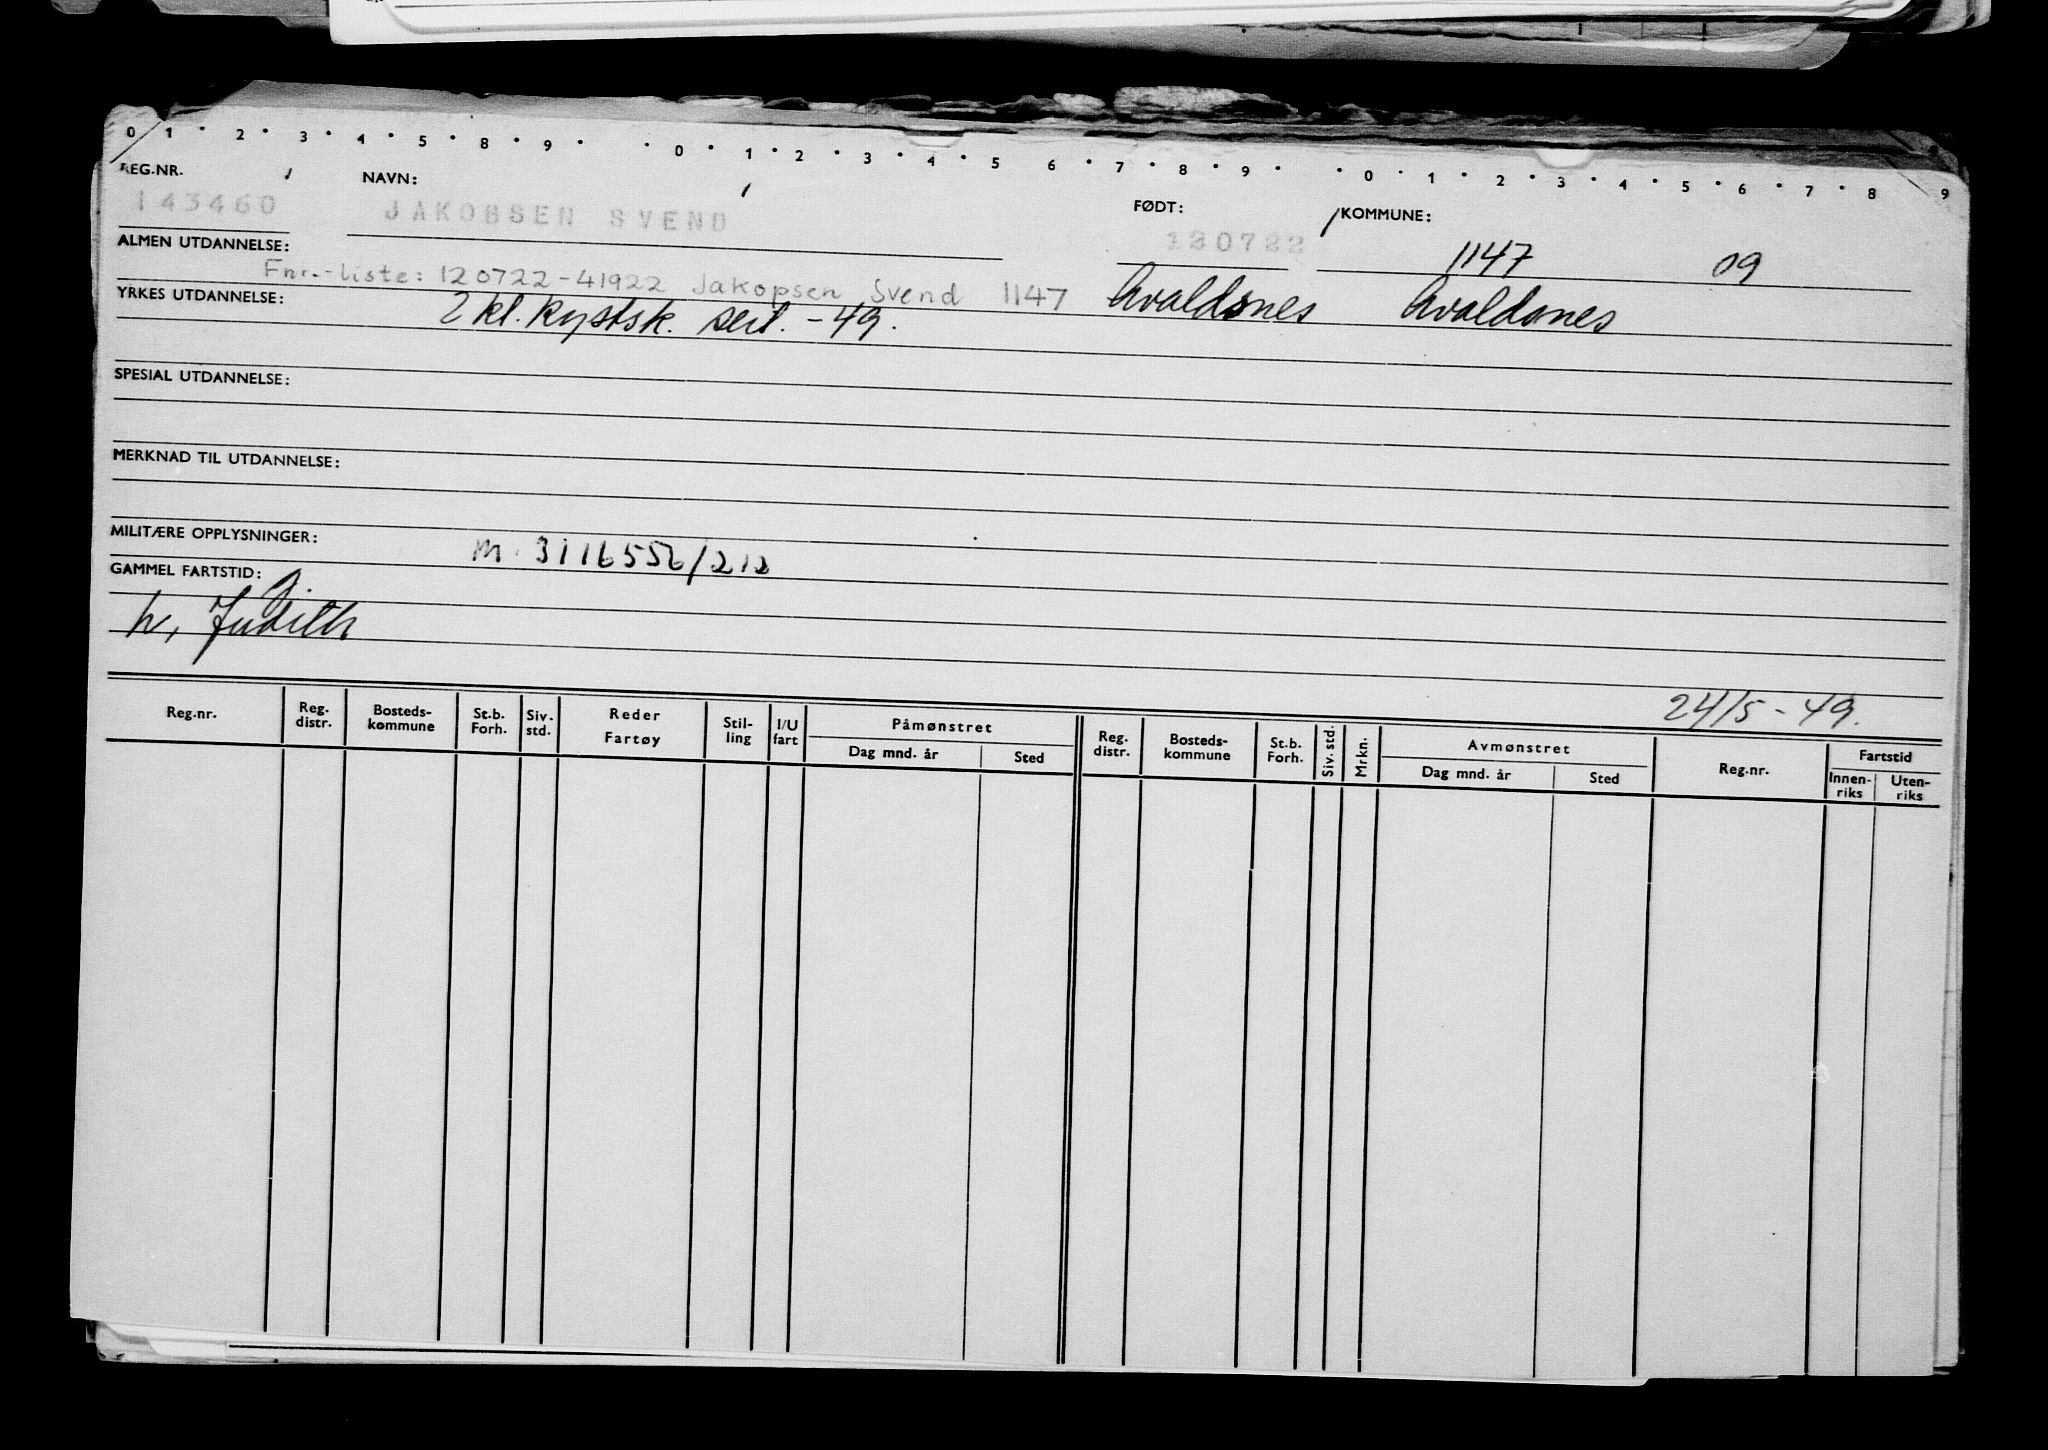 0 1 · 2 · 3 · 4 · 5 · 8 · 9 · · 0 · 1 · 2 · 3 · 4 · 5 6 · 7 · 8 · 9 · · 0 · 1 · 2 · 3 · 4 · 5 · 6 · 7 · 8 9
REG.NR. NAVN: FØDT: KOMMUNE:
143460 JAKOBSEN SVEND 120722 1147 09
ALMEN UTDANNELSE:
Fnr.-liste: 120722-41922 Jakopsen Svend 1147 Avaldsnes Avaldsnes
YRKES UTDANNELSE: 2 kl. kystsk. sert. -49.
SPESIAL UTDANNELSE:
MERKNAD TIL UTDANNELSE:
MILITÆRE OPPLYSNINGER: M. 3116556/212
GAMMEL FARTSTID:
h, Judith
24/5-49.
Reg.nr. Reg. distr. Bosteds-kommune St.b. Forh. Siv. std. Reder Fartøy Stil-ling I/U fart Påmønstret Dag mnd. år Sted Reg. distr. Bosteds-kommune St.b. Forh. Siv. std. Mrkn. Avmønstret Dag mnd. år Sted Reg.nr. Fartstid Innen-riks Uten-riks